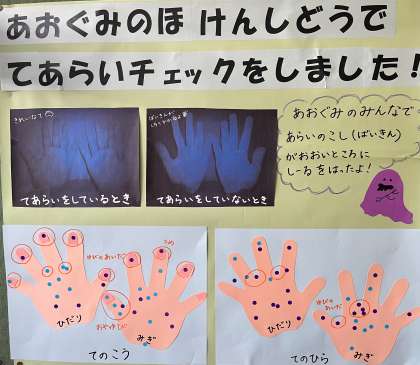 あおぐみのほ けんしどうで
てあらいチェックをしました!
きれいなて
ばいきんが
てあらいをしているとき
てあらいをしていないとき
あおぐみのみんなで
あらいのこし(ばいきん)
がおおいところに
しーるをはったよ!
ゆびのあいだ
つめ
おやゆび
ひだり
みぎ
てのこう
ゆびのあいだ
ひだり
みぎ
てのひら